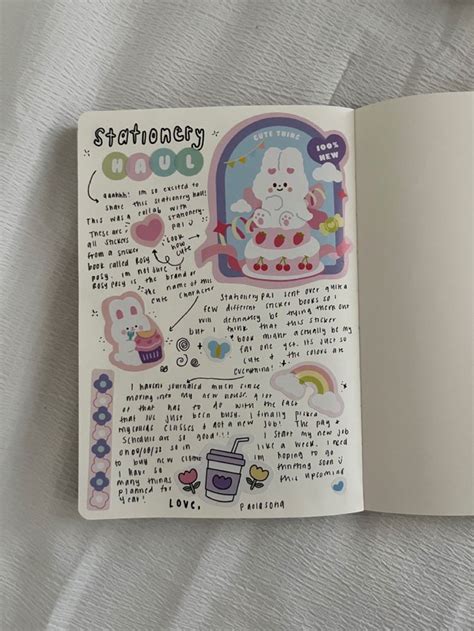 Stationery
HAUL
CUTE THING
100%
NEW
aaahhh! im so excited to
share this stationery haul!
This was a collab with
stationery.
pal
These are
all stickers
look
how
cute
from a sticker
book called Rosy
posy. im not sure if
Rosy posy is the brand or
the name of this
cute character
Stationery pal sent over quite a
few different sticker books so i
will definitely be trying them out
but i think that this sticker
book might actually be my
fav one yet. its just so
cute & the colors are
everything!
I havent journaled much since
moving into my new house. A lot
of that has to do with the fact
that ive just been busy. i finally picked
my classes & got a new job! The pay &
schedule are so good!!
I start my new job
in like a week. I need
to buy new
im hoping to go
I have so
many things
planned for
thrifting soon
this upcoming
year!
LOVE,